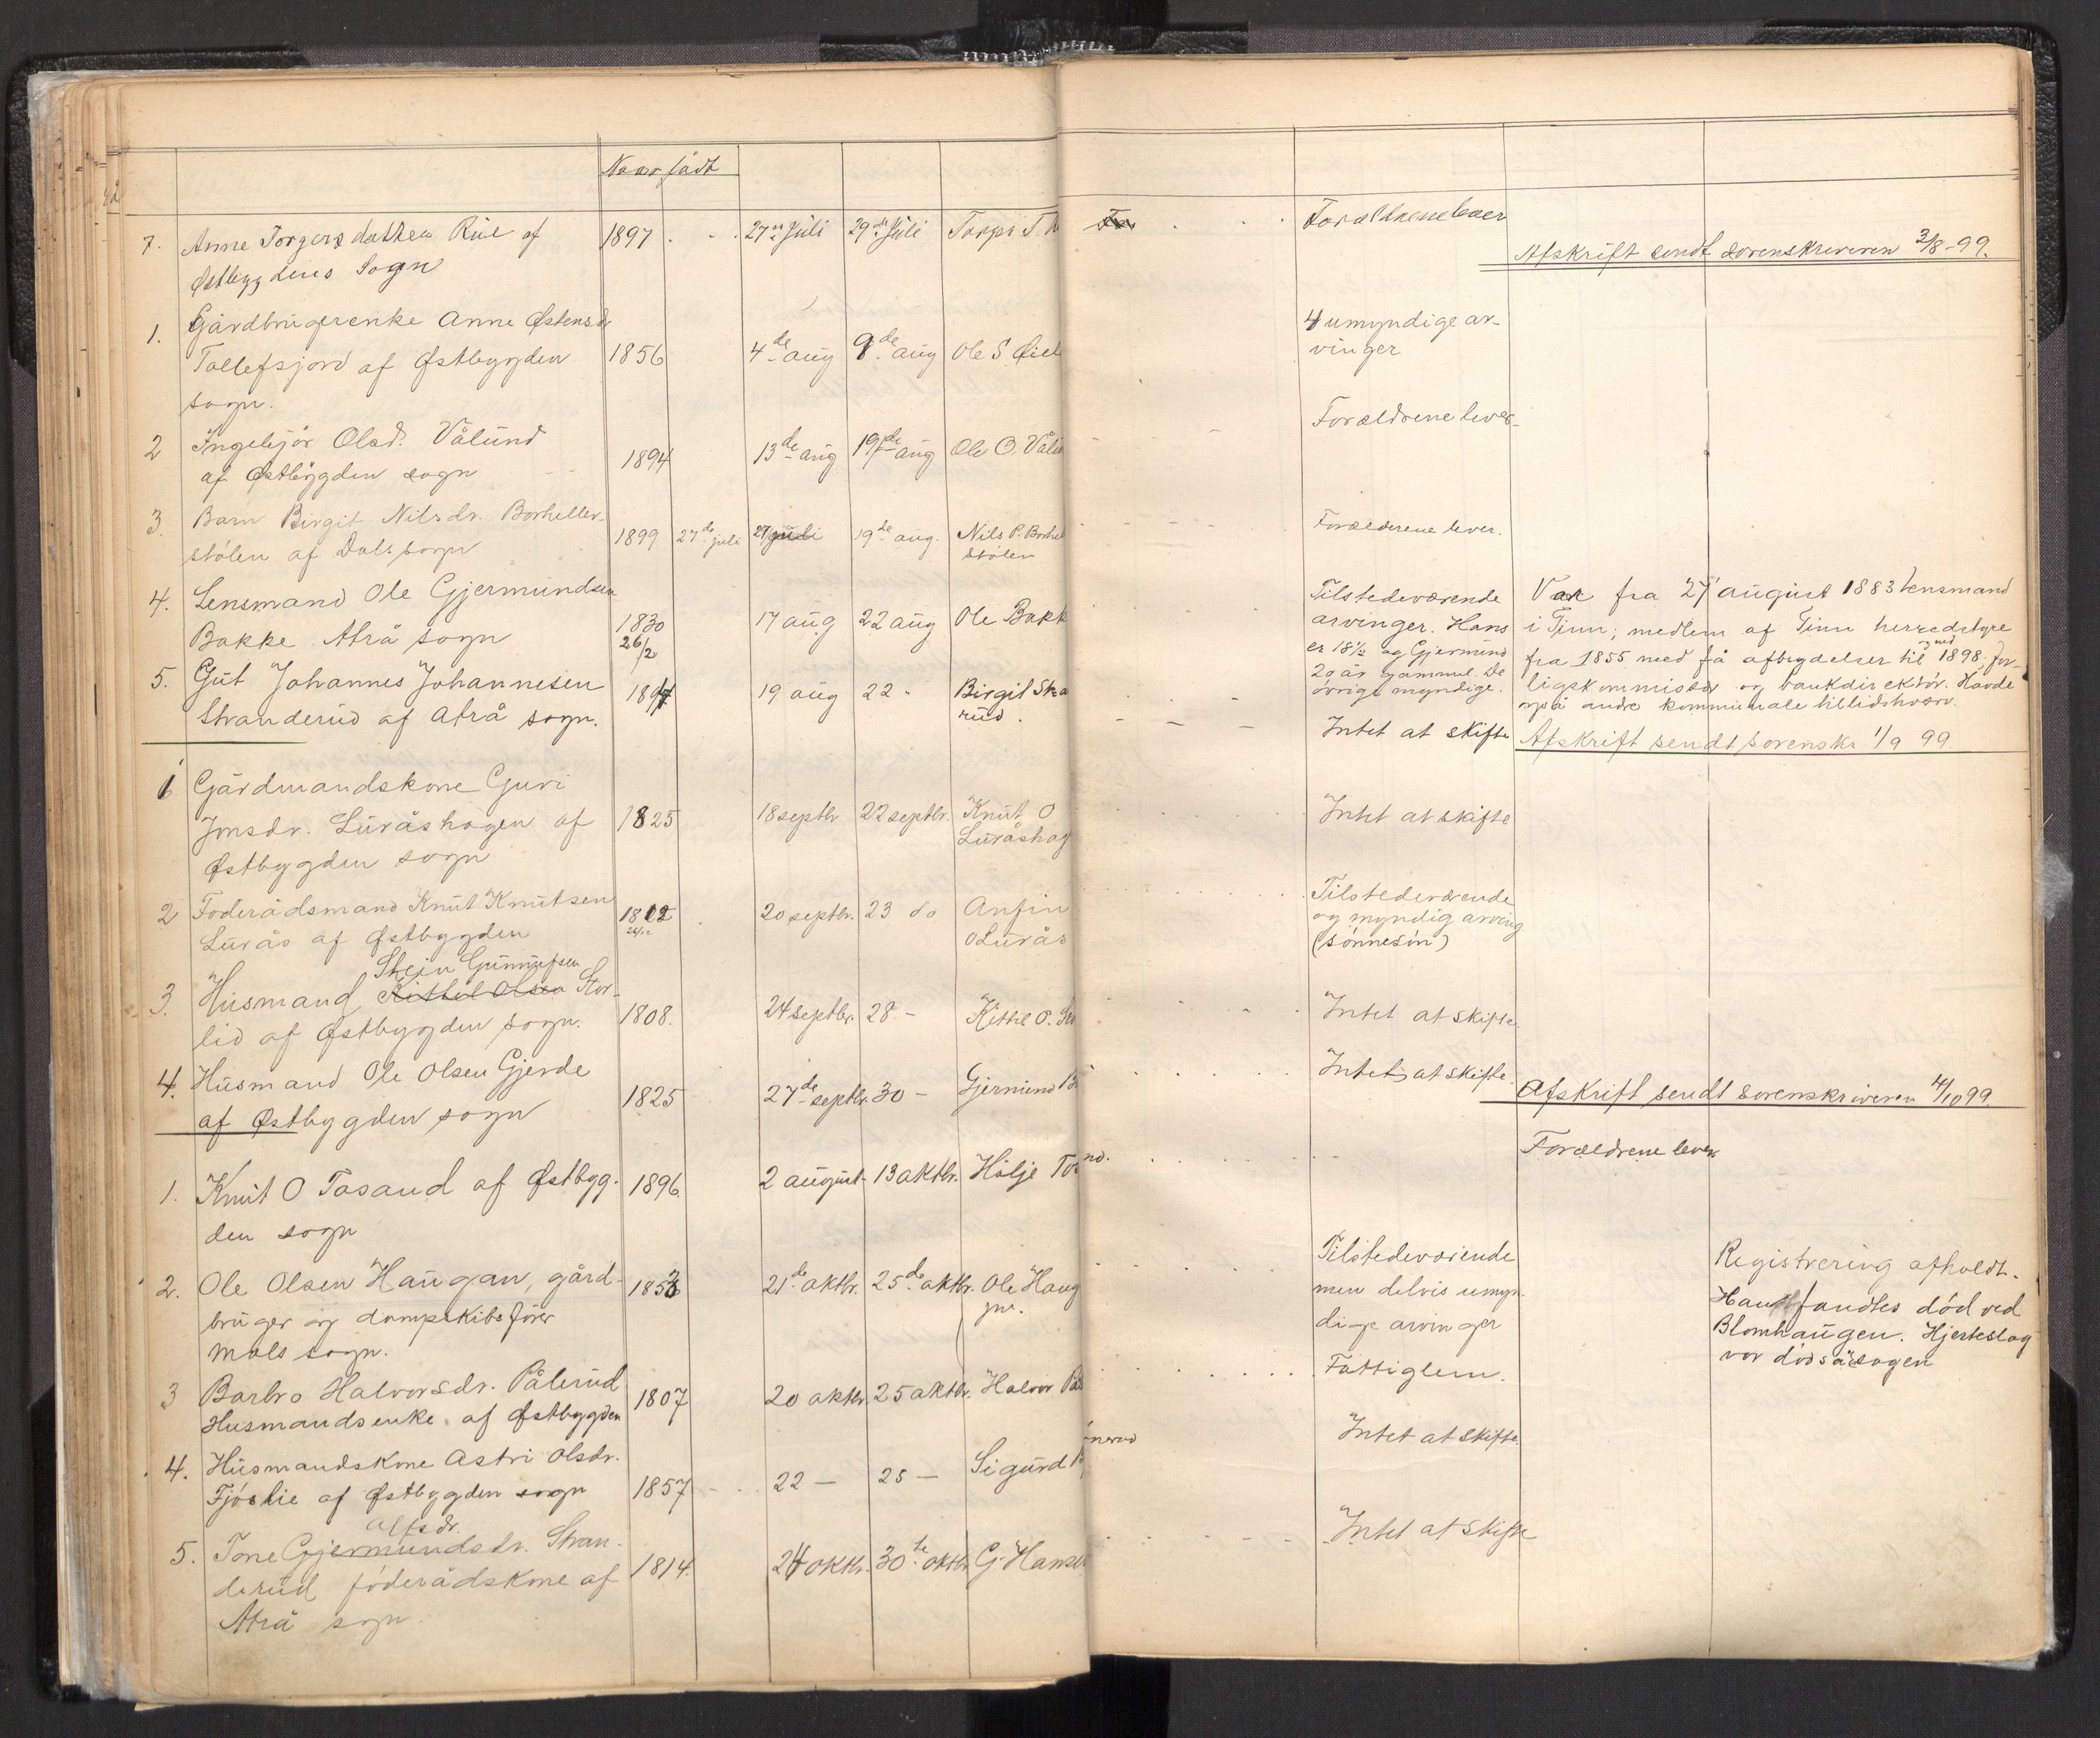 Naar født
7. Anne Torgersdatter Rue af 1897 27de Juli 29de Juli Torger T.
Østbygdens Sogn
1. Gårdbrugerenke Anne Østensdr
Tollefsjord af Østbygden 1856 4de aug 9de aug Ole S
sogn.
2 Ingebjør Olsd. Vålund
af Østbygden sogn 1894 13de aug 19de aug Ole O.
3. Barn Birgit Nilsdr. Borheller-
stølen af Dals sogn 1899 27de juli 27 juli 19de aug. Nils P.
stølen
4. Lensmand Ole Gjermundsen
Bakke Atrå sogn 1830 17 aug 22 aug Ole Bakk
26/2
5. Gut Johannes Johannesen 1897 19 aug 22 - Birgit
Stranderud af Atrå sogn. rud.
1 Gårdmandskone Guri
Jonsdr. Luråshagen af 1825 18 septbr. 22 septbr. Knut O
Østbygden sogn Luråshag
2 Foderådsmand Knut Knutsen 1812 20 septbr. 23 do Anfin
Lurås af Østbygden 24/12 O Lurås
Stein Gunnufsen
3. Husmand Kittil Olsen Stor-
lid af Østbygden sogn. 1808. 24 septbr. 28 - Kittil O.
4. Husmand Ole Olsen Gjerde
af Østbygden sogn 1825 27de septbr. 30 - Gjermund
1. Knut O Tosand af Østbyg- 1896 2 august 13 aktbr. Hølje
den sogn
2. Ole Olsen Haugan, gård- 1853 21de aktbr. 25de aktbr. Ole Haug
bruger og dampskibsfører jnr.
Mæls sogn.
3 Barbro Halvorsdr. Pålerud 1807 20 aktbr. 25 aktbr. Halvor
Husmandsenke af Østbygden
4. Husmandskone Astri Olsdr.
Fjøslie af Østbygden sogn 1857 22 - 25 - Sigurd
Alfsdr.
5. Tone Gjermundsdr. Stran- 1814. 24 oktbr. 30te oktbr G. Hanse
derud føderådskone af
Atrå sogn.
Forældrene lever
Afskrift sendt sorenskriveren 3/8-99.
4 umyndige ar-
vinger
Forældrene lever.
Forældrene lever.
Tilstedeværende
arvinger. Hans
er 18½ og Gjermund
2g år gammel. De
øvrige myndige.
Var fra 27 august 1883 Lensmand
i Tinn; medlem af Tinn herredstyre
fra 1855 med få afbrydelser til og med 1898, for-
ligskommissær og bankdirektør. Havde
også andre kommunale tillidshverv.
Intet at skifte Afskrift sendt sorenskr 1/9 99
Intet at skifte
Tilstedeværende
og myndig arving
(sønnesøn)
Intet at skifte.
Intet at skifte.
Afskrift sendt sorenskriveren 4/10 99.
Forældrene lever
Tilstedeværende
men delvis umyn-
dige arvinger
Registrering afholdt.
Haug fandtes død ved
Blomhaugen. Hjerteslag
var dødsårsagen
Fattiglem.
Intet at skifte.
Intet at skifte